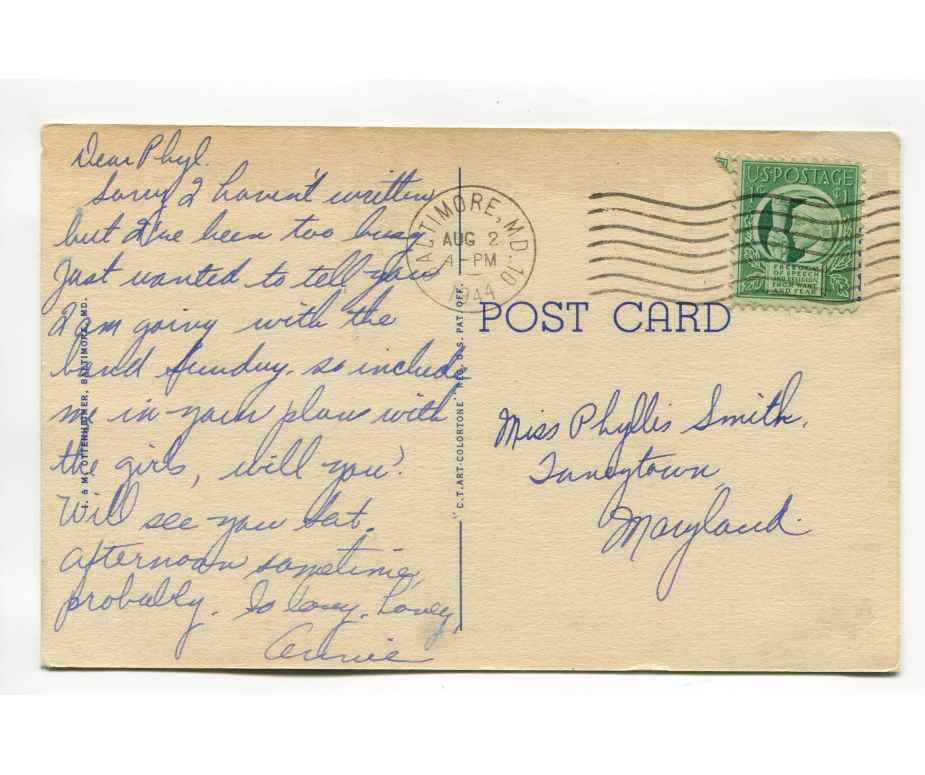 Dear Phyl.
Sorry I haven't written
but I've been too busy
Just wanted to tell you
I am going with the
band Sunday. so include
me in your plans with
the girls, will you?
Will see you Sat.
afternoon sometime,
probably. So long. Lovey,
Annie
I. & M. OTTENHEIMER, BALTIMORE, MD.
"C.T. ART-COLORTONE" REG. U.S. PAT. OFF.
BALTIMORE, MD. 10
AUG 2
PM
1944
U.S. POSTAGE
1¢ 1¢
FREEDOM
OF SPEECH
AND RELIGION
FROM WANT
AND FEAR
POST CARD
Miss Phyllis Smith,
Taneytown,
Maryland.